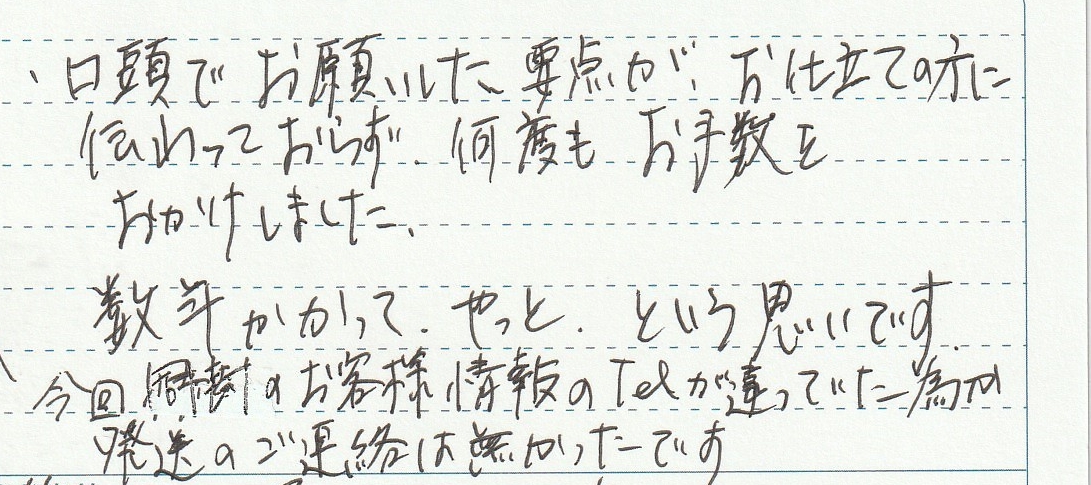 、口頭でお願いした、要点が、お仕立ての方に
伝わっておらず、何度も お手数を
おかけしました、
数年かかって、やっと、という思いです。
今回 のお客様情報のTelが違っていた為か
発送のご連絡は無かったです